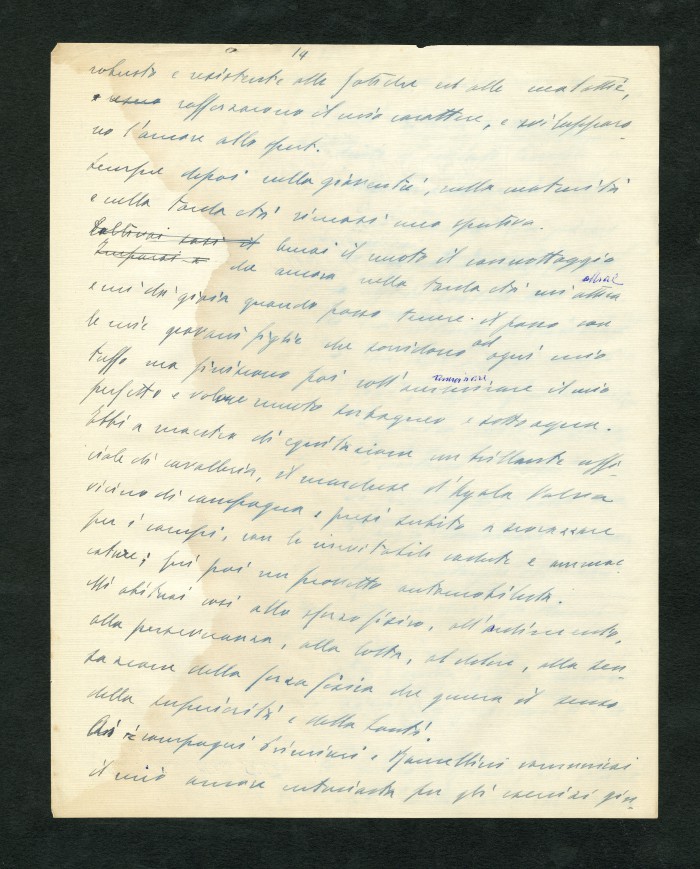 14
robusto e resistente alle fatiche ed alle malattie,
e rafforzarono il mio carattere, e svilupparo-
no l'amore allo sport.
Sempre dopoi nella gioventù, nella maternità
e nella tarda età rimasi una sportiva.
Coltivai così il amai il nuoto il canottaggio
Imparai a da ancora nella tarda età un'altra
e mi dà gioia quando posso tenere il passo con
le mie giovani figlie che sorridono ad ogni mio
tuffo ma finiscono poi coll'ammirare il mio
perfetto e veloce nuoto sottacqua.
Ebbi a maestro di equitazione un brillante uffi-
ciale di cavalleria, il marchese d'Ayala Valva
vicino di campagna e presi subito a scorazzare
per i campi, con le inevitabili cadute e ammac-
cature; fui poi un provetto automobilista.
Mi abituai così allo sforzo fisico, all'ardimento,
alla perseveranza, alla lotta, al dolore, alla sen-
sazione della forza fisica che genera il senso
della superiorità e della bontà.
Ai compagni e comunicai
il mio amore entusiasta per gli esercizi gin-